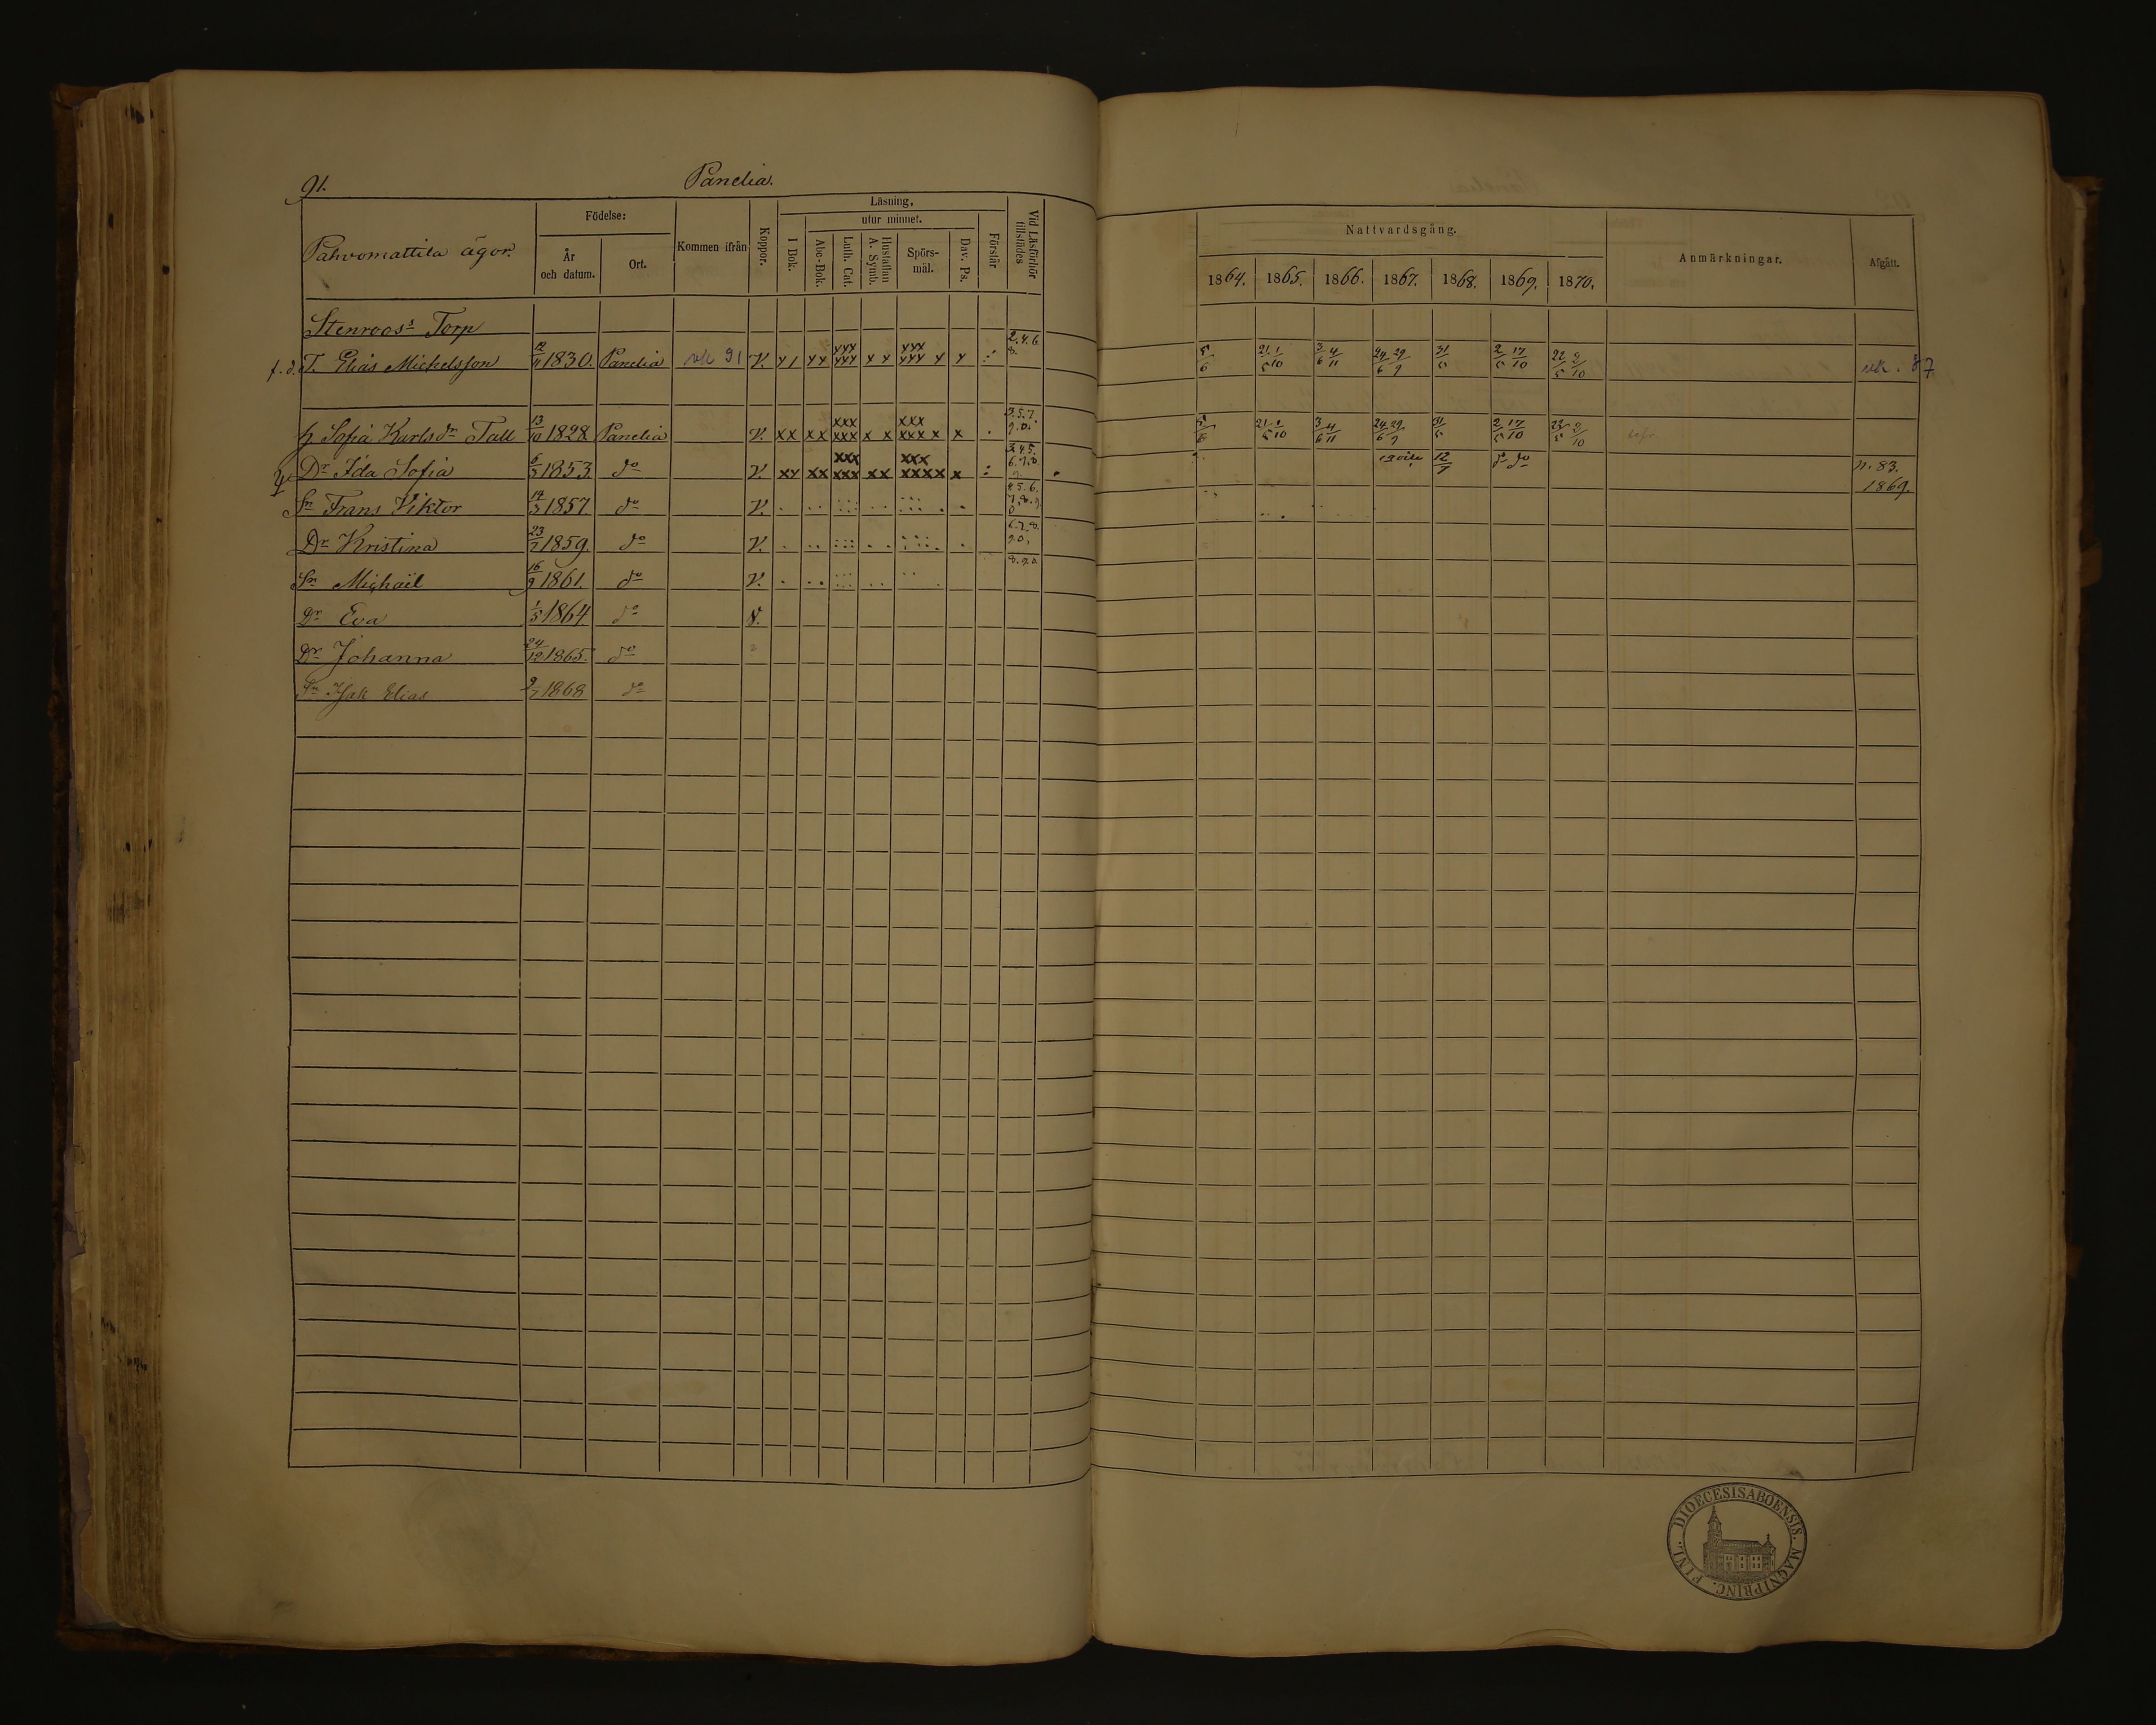 91. Panelia.
Pahvomattila ägor.
Födelse:
År och datum.
Ort.
Kommen ifrån
Koppor.
Läsning,
utur minnet.
I Bok.
Abc-Bok.
Luth. Cat.
Hustaflan A. Symb.
Spörs-mål.
Dav. Ps.
Förstår
Vid Läsförhör tillstädes
Nattvardsgång.
1864. 1865. 1866. 1867. 1868. 1869. 1870.
Anmärkningar.
Afgått.
Stenroos's Torp
f.d. T. Elias Michelsson 12/11 1830. Panelia vk 91 V. 2.4.6. 8. 5/6 21/5 1/10 3/6 4/11 24/6 29/9 31/5 2/5 17/10 22/5 9/10 vk. 87
h Sofia Karlsdr Tall 13/10 1828 Panelia V. xx xx xxx xxx x x xxx xxx x x 3.5.7. 9.0. 21/5 1/10 3/6 4/11 24/6 29/9 31/5 2/5 17/10 22/5 9/10
Dr Ida Sofia 6/5 1853. do V. xx xx xxx xxx xx xxx xxxx x 3.4.5. 6.7.8. 12/7 do do n. 83. 1869.
Sn Frans Viktor 14/3 1857. do V. 4.5.6. 7.8.9. 0
Dr Kristina 23/7 1859. do V. 6.7.8. 9.0.
Sn Michaël 16/9 1861. do V. 8.9.0.
Dr Eva 1/5 1864. do V.
Dr Johanna 24/12 1865. do
Sn Isak Elias 9/7 1868 do
DIOECESIS ABOENSIS. MAGNI PRINC. FINL.